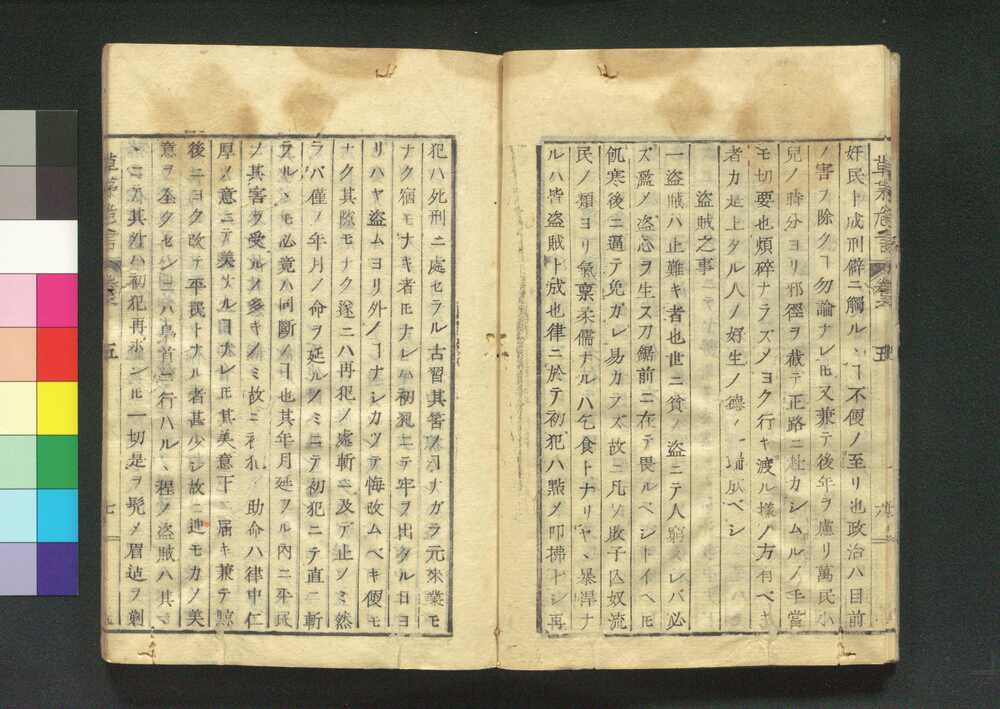 奸民ト成刑辟ニ觸ルヽヿ不便ノ至リ也政治ハ目前
ノ害ヲ除クヿ勿論ナレ𪜈又兼テ後年ヲ慮リ萬民小
兒ノ時分ヨリ邪徑ヲ截テ正路ニ赴カシムルノ手當
モ切要也煩碎ナラズメヨク行キ渡ル樣ノ方有ベキ
者カ是上タル人ノ好生ノ德ノ
盜賊之事
一盜賊ハ止難キ者也世ニ貧ノ盜ニテ人窮スレバ必
ズ濫メ盜心ヲ生ス刀鋸前ニ在テ畏ルベシトイヘ𪜈
飢寒後ニ逼テ免ガレ易カラズ故ニ凡ソ敗子囚奴流
民ノ類ヨリ氣稟柔儒ナルハ乞食トナリヤヽ暴渾ナ
ルハ皆盜賊ト成也律ニ於テ初犯ハ點メ叩拂ナシ再
犯ハ死刑ニ處セラル古習其筈ノヿナガラ元來業モ
ナク宿モナキ者モナレハ初犯ニテ牢ヲ出タル日ヨ
リハヤ盜ムヨリ外ノヿナシカツテ悔改ムベキ便モ
ナク其隙モナク遂ニハ再犯ノ處斬ニ及デ止ノミ然
ラバ僅ノ年月ノ命ヲ延ルノミニテ初犯ニテ直ニ斬
ラルヽモ必竟ハ同斷ノヿ也其年月延フル內ニ平民
ノ其害ヲ受ルノ多キノミ故ニ初犯ノ助命ハ律中仁
厚ノ意ニテ美ナルヿナレ𪜈其美意下ニ届キ兼テ黥
後ニヨク改テ平民トナル者甚少シ故ニ迚モカノ美
意ヲ全クセンニハ梟首ニ行ハルヽ程ノ盜賊ハ其
其外ハ初犯再求ン𪜈一切是ヲ髡メ眉迠ヲ剃
草茅危言
卷之
五
六
五
七